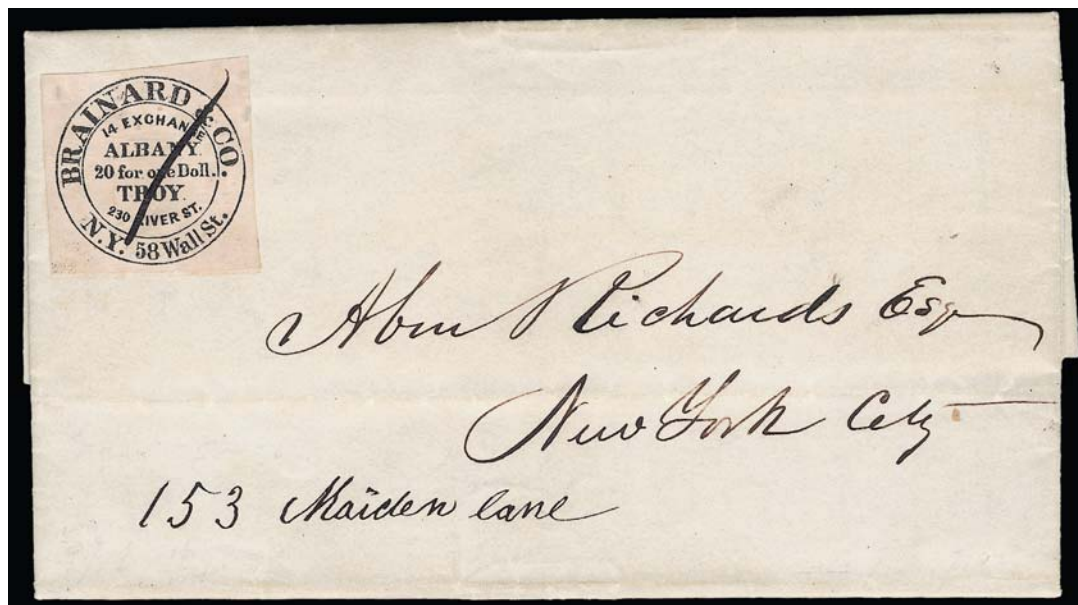 BRAINARD & CO.
14 EXCHANGE
ALBANY.
20 for one Doll.
TROY.
230 RIVER ST.
N.Y. 58 Wall St.
Abm Richards Esq
New York City
153 Maiden lane